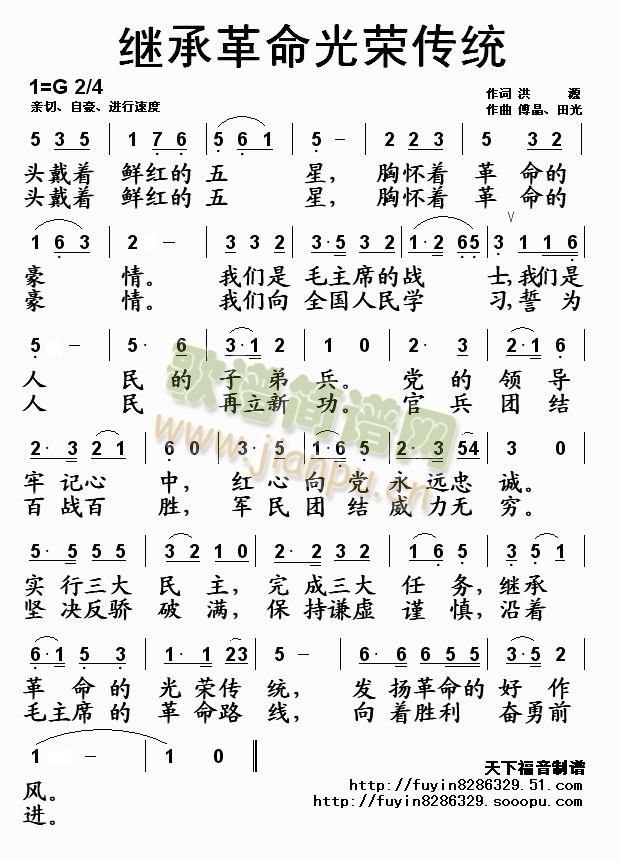 继承革命光荣传统
1=G 2/4
亲切、自豪、进行速度
作词 洪 源
作曲 傅晶、田光
5 3 5 | 1 7 6 | 5 6 1 | 5 - | 2 2 3 | 5 3 2 |
头戴着 鲜红的 五 星, 胸怀着 革 命的
头戴着 鲜红的 五 星, 胸怀着 革 命的
1 6 3 | 2 - | 3 3 2 | 3·5 3 2 | 1·2 6 5 | 5 3 | 1 1 1 6 |
豪 情。 我们是 毛主席的战 士,我们是
豪 情。 我们向 全国人民学 习,誓为
5 - | 5· 6 | 3·1 2 | 1 0 | 2· 3 | 2·1 6 |
人 民 的 子 弟 兵。 党 的 领 导
人 民 再立新 功。 官 兵 团 结
2· 3 2 1 | 6 0 | 3· 5 | 1·6 5 | 2· 3 5 4 | 3 0 |
牢 记心 中, 红 心向 党 永 远忠 诚。
百 战百 胜, 军 民团 结 威 力无 穷。
5· 5 5 5 | 3 2 1 0 | 2· 2 3 2 | 1 6 5 | 5 1 |
实 行三大 民 主, 完 成三大 任 务,继承
坚 决反骄 破 满, 保 持谦虚 谨 慎,沿着
6·1 5 3 | 1· 1 2 3 | 5 - | 6· 6 | 6 6 5 5 | 3·5 2 |
革 命的 光 荣传 统, 发 扬革命的 好 作
毛主席 的 革 命路 线, 向 着胜利 奋勇前
1 - | 1 0 ‖
风。
进。
歌谱简谱网
www.jianpu.cn
天下福音制谱
http://fuyin8286329.51.com/
http://fuyin8286329.sooopu.com/